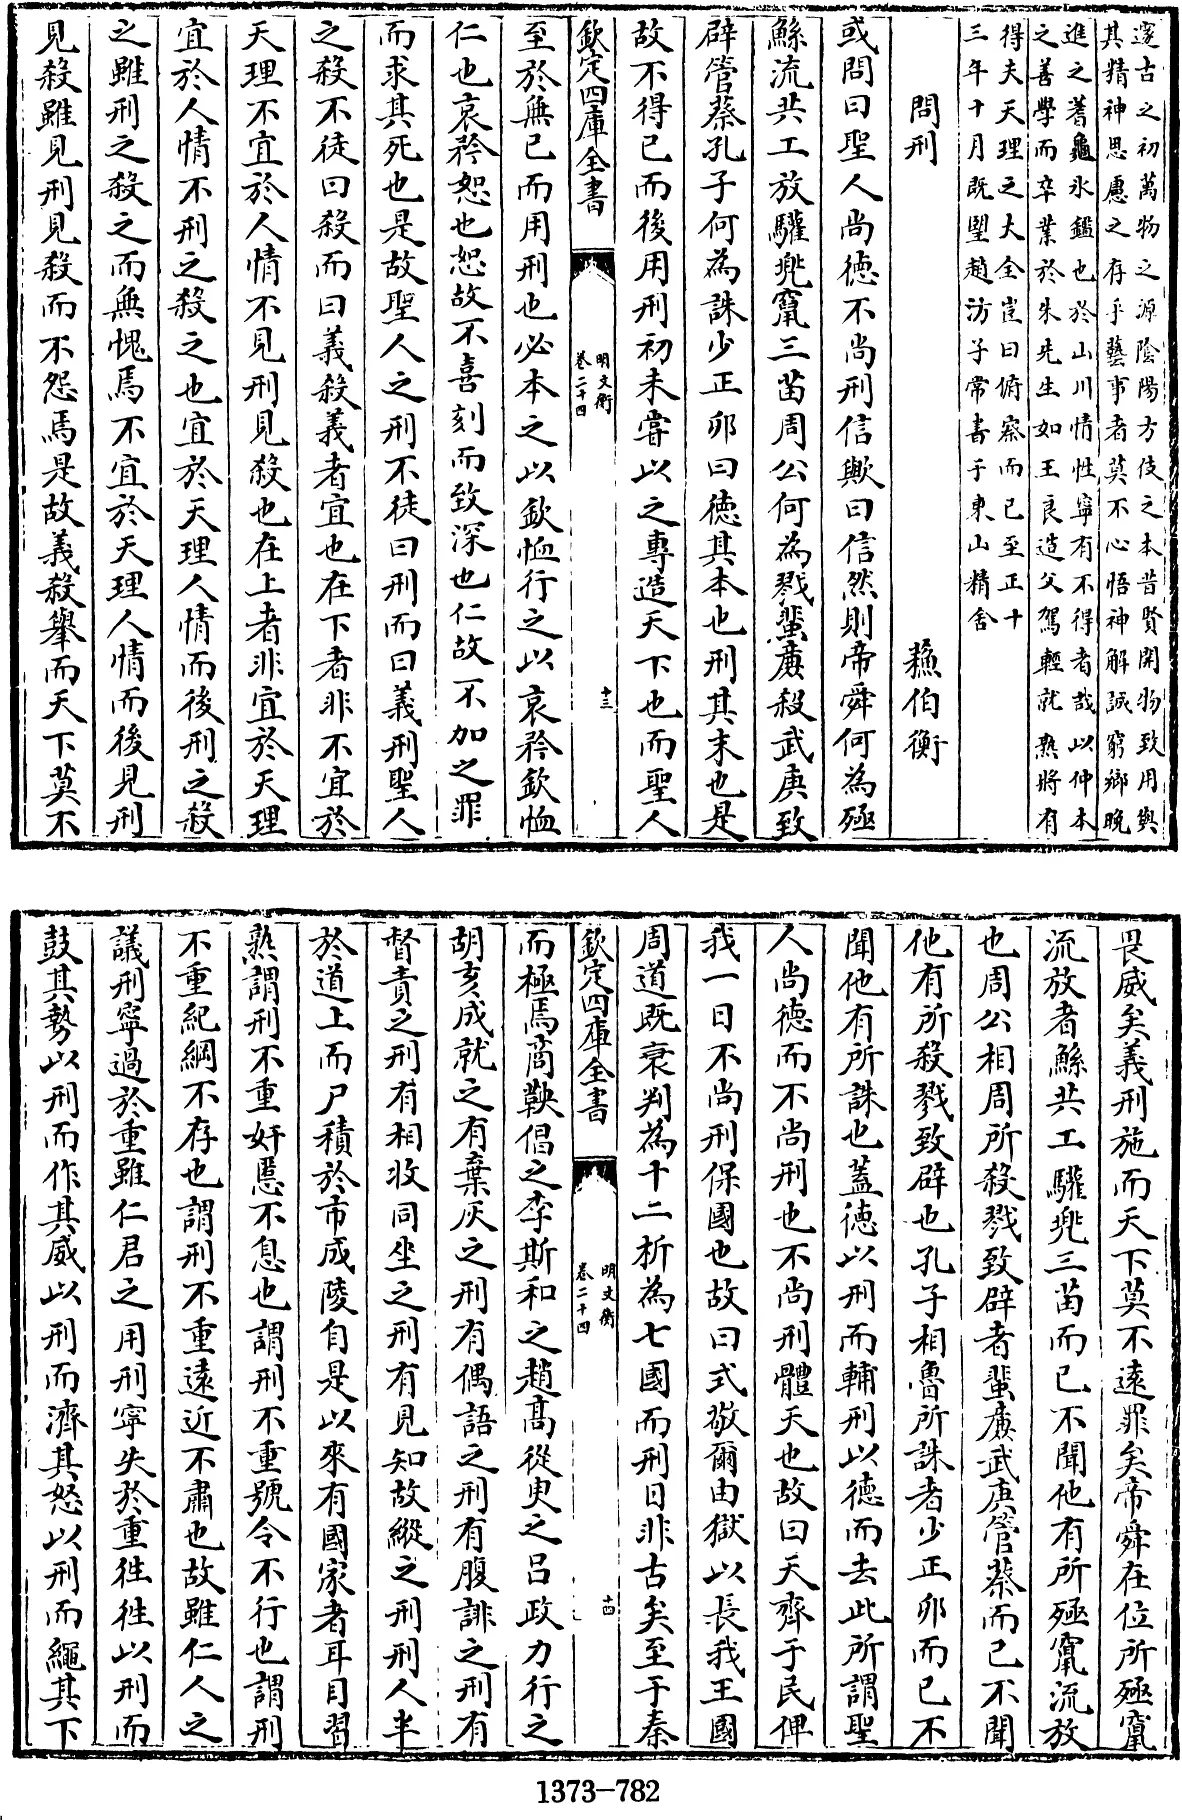 邃古之初萬物之源陰陽方伎之本昔賢開物致用與
其精神思慮之存乎藝事者莫不心悟神解誠窮鄉晚
進之蓍龜氷鑑也於山川情性寧有不得者哉以仲本
之善學而卒業於朱先生如王良造父駕輕就熟將有
得夫天理之大全豈曰俯察而已至正十
三年十月既朢趙汸子常書于東山精舍
問刑 蘓伯衡
或問曰聖人尚徳不尚刑信歟曰信然則帝舜何為殛
鯀流共工放驩兜竄三苗周公何為戮蜚廉殺武庚致
辟管蔡孔子何為誅少正卯曰徳其本也刑其末也是
故不得已而後用刑初未嘗以之專造天下也而聖人
欽定四庫全書 明文衡 卷二十四 十三
至於無已而用刑也必本之以欽恤行之以哀矜欽恤
仁也哀矜恕也恕故不喜刻而致深也仁故不加之罪
而求其死也是故聖人之刑不徒曰刑而曰義刑聖人
之殺不徒曰殺而曰義殺義者宜也在下者非不宜於
天理不宜於人情不見刑見殺也在上者非宜於天理
宜於人情不刑之殺之也宜於天理人情而後刑之殺
之雖刑之殺之而無愧焉不宜於天理人情而後見刑
見殺雖見刑見殺而不怨焉是故義殺舉而天下莫不
畏威矣義刑施而天下莫不遠罪矣帝舜在位所殛竄
流放者鯀共工驩兜三苗而已不聞他有所殛竄流放
也周公相周所殺戮致辟者蜚廉武庚管蔡而已不聞
他有所殺戮致辟也孔子相魯所誅者少正卯而已不
聞他有所誅也蓋徳以刑而輔刑以徳而去此所謂聖
人尚徳而不尚刑也不尚刑體天也故曰天齊于民俾
我一日不尚刑保國也故曰式敬爾由獄以長我王國
周道既衰判為十二析為七國而刑日非古矣至于秦
欽定四庫全書 明文衡 卷二十四 十四
而極焉商鞅倡之李斯和之趙高從臾之呂政力行之
胡亥成就之有棄灰之刑有偶語之刑有腹誹之刑有
督責之刑有相收同坐之刑有見知故縱之刑刑人半
於道上而尸積於市成陵自是以來有國家者耳目習
熟謂刑不重奸慝不息也謂刑不重號令不行也謂刑
不重紀綱不存也謂刑不重遠近不肅也故雖仁人之
議刑寧過於重雖仁君之用刑寧失於重往往以刑而
鼓其勢以刑而作其威以刑而濟其怒以刑而繩其下
1373-782